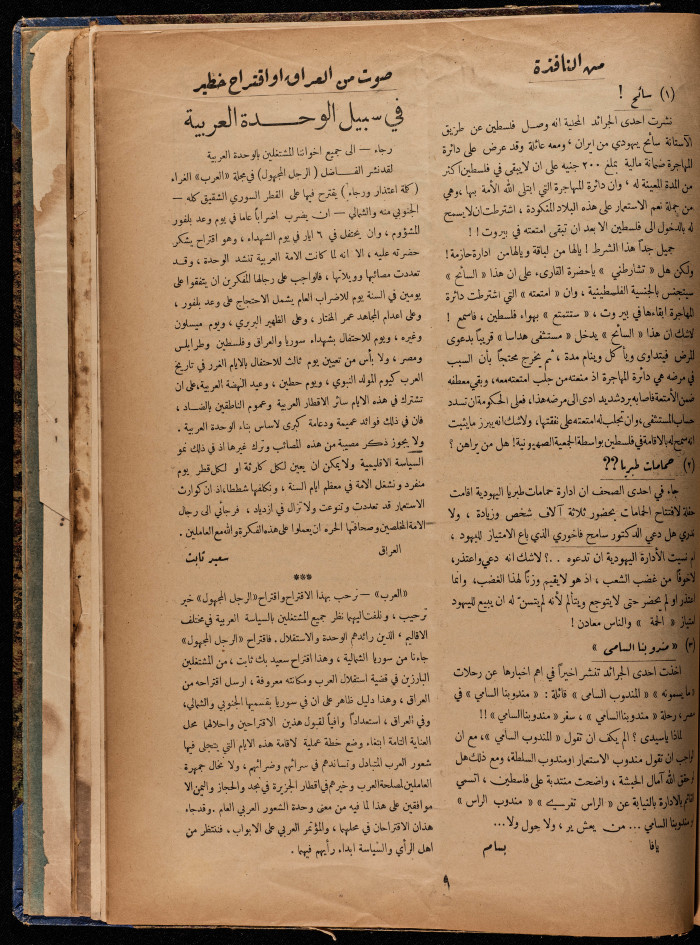 من النافذة
(١) سائح !
نشرت احدى الجرائد المحلية انه وصل فلسطين عن طريق
الآستانة سائح يهودي من ايران ، ومعه عائلة وقد عرض على دائرة
المهاجرة ضمانة مالية تبلغ ٣٠٠ جنيه على ان لا يبقى في فلسطين اكثر
من المدة المعينة له ، وان دائرة المهاجرة التي ابتلى الله الأمة بها ، وهي
من جملة نعم الاستعمار على هذه البلاد المنكودة ، اشترطت ان لا يسمح
له بالدخول الى فلسطين الا بعد ان تبقى امتعته في بيروت ! !
جميل جداً هذا الشرط ! يالها من لباقة ويالها من ادارة حازمة !
ولكن هل « تشارطني » ياحضرة القارىء على ان هذا « السائح »
سيتجنس بالجنسية الفلسطينية ، وان « امتعته » التي اشترطت دائرة
المهاجرة ابقاءها في بيروت ، « ستتمتع » بهواء فلسطين ، فاسمع !
لاشك ان هذا « السائح » يدخل « مستشفى هداسا » قريباً بدعوى
المرض فيتداوى ويأكل وينام مدة ، ثم يخرج محتجاً بأن السبب
في مرضه هي دائرة المهاجرة اذ منعته من جلب امتعته معه ، وبقي معطفه
ضمن الأمتعة فأصابه برد شديد ادى الى مرضه هذا ، فعلى الحكومة ان تسدد
حساب المستشفى ، وان تجلب له امتعته على نفقتها ، ولاشك انه يبرز مايثبت
انه سمح له بالاقامة في فلسطين بواسطة الجمعية الصهيونية ! هل من براهن ؟
(٢) حمامات طبريا ؟؟
جاء في احدى الصحف ان ادارة حمامات طبريا اليهودية اقامت
حفلة لافتتاح الحمامات بحضور ثلاثة آلاف شخص وزيادة ، ولا
ندري هل دعي الدكتور سامح فاخوري الذي باع الامتياز لليهود ،
ام نسيت الأدارة اليهودية ان تدعوه . . ؟ لاشك انه دعي واعتذر ،
لاخوفاً من غضب الشعب ، اذ هو لايقيم وزناً لهذا الغضب ، وانما
اعتذر او لم يحضر حتى لايتوجع ويتألم لأنه لم يتسنّ له ان يبيع لليهود
امتياز « الحمة » والناس معادن !
(٣) « مندوبنا السامي »
اخذت احدى الجرائد تنشر اخيراً في اهم اخبارها عن رحلات
« مايسمونه » « المندوب السامي » قائلة : « مندوبنا السامي » في
مصر ، رحلة « مندوبنا السامي » ، سفر « مندوبنا السامي » !!
لماذا ياسيدي ؟ الم يكف ان تقول « المندوب السامي » ، مع ان
الواجب ان تقول مندوب الاستعمار ومندوب السلطة ، ومع ذلك هل
تحقق الله آمال الحبشة ، واضحت منتدبة على فلسطين ، اتسمي
القائم بالادارة بالنيابة عن « الراس تفريـ » « مندوب الراس »
ومندوبنا السامي ... من يعش ير ، ولا حول ولا ...
يافا بسام
صوت من العراق او اقتراح خطير
في سبيل الوحدة العربية
رجاء — الى جميع اخواننا المشتغلين بالوحدة العربية
لقد نشر الفاضل ( الرجل المجهول ) في مجلة « العرب » الغراء
( كلة اعتذار ورجاء ) يقترح فيها على القطر السوري الشقيق كله —
الجنوبي منه والشمالي — ان يضرب اضراباً عاما في يوم وعد بلفور
المشؤوم ، وان يحتفل في ٦ ايار في يوم الشهداء ، وهو اقتراح يشكر
حضرته عليه ، الا انه لما كانت الامة العربية تنشد الوحدة ، وقد
تعددت مصائبها وويلاتها ، فالواجب على رجالها المفكرين ان يتفقوا على
يومين في السنة يوم للاضراب العام يشمل الاحتجاج على وعد بلفور ،
وعلى اعدام المجاهد عمر المختار ، وعلى الظهير البربري ، ويوم ميسلون
وغيره ، ويوم للاحتفال بشهداء سوريا والعراق وفلسطين وطرابلس
ومصر ، ولا بأس من تعيين يوم ثالث للاحتفال بالايام الغرر في تاريخ
العرب كيوم المولد النبوي ، ويوم حطين ، وعيد النهضة العربية ، على ان
تشترك في هذه الايام سائر الاقطار العربية وعموم الناطقين بالضاد ،
فان في ذلك فوائد عميمة ودعامة كبرى لاساس بناء الوحدة العربية .
ولا يجوز ذكر مصيبة من هذه المصائب وترك غيرها اذ في ذلك نمو
السياسة الاقليمية ولا يمكن ان يعين لكل كارثة او لكل قطر يوم
منفرد ونشغل الامة في معظم ايام السنة ، ونكلفها شططا ، اذ ان كوارث
الاستعمار قد تعددت وتنوعت ولا تزال في ازدياد ، فرجائي الى رجال
الامة المخلصين وصحافتها الحره ان يعملوا على هذه الفكرة والله مع العاملين .
العراق سعيد ثابت
***
« العرب » — نرحب بهذا الاقتراح واقتراح « الرجل المجهول » خير
ترحيب ، ونلفت اليهما نظر جميع المشتغلين بالسياسة العربية في مختلف
الاقاليم ، الذين رائدهم الوحدة والاستقلال . فاقتراح « الرجل المجهول »
جاءنا من سوريا الشمالية ، وهذا اقتراح سعيد بك ثابت ، من المشتغلين
البارزين في قضية استقلال العرب ومكانته معروفة ، ارسل اقتراحه من
العراق ، وهذا دليل ظاهر على ان في سوريا بقسميها الجنوبي والشمالي ،
وفي العراق ، استعداداً وافياً لقبول هذين الاقتراحين واحلالهما محل
العناية التامة ابتغاء وضع خطة عملية لاقامة هذه الايام التي يتجلى فيها
شعور العرب المتبادل وتساندهم في سرائهم وضرائهم ، ولا نخال جمهرة
العاملين لمصلحة العرب وخيرهم في اقطار الجزيرة في نجد والحجاز واليمن الا
موافقين على هذا لما فيه من معنى وحدة الشعور العربي العام . وقد جاء
هذان الاقتراحان في محلهما ، والمؤتمر العربي على الابواب . فننتظر من
اهل الرأي والسياسة ابداء رأيهم فيهما .
٩